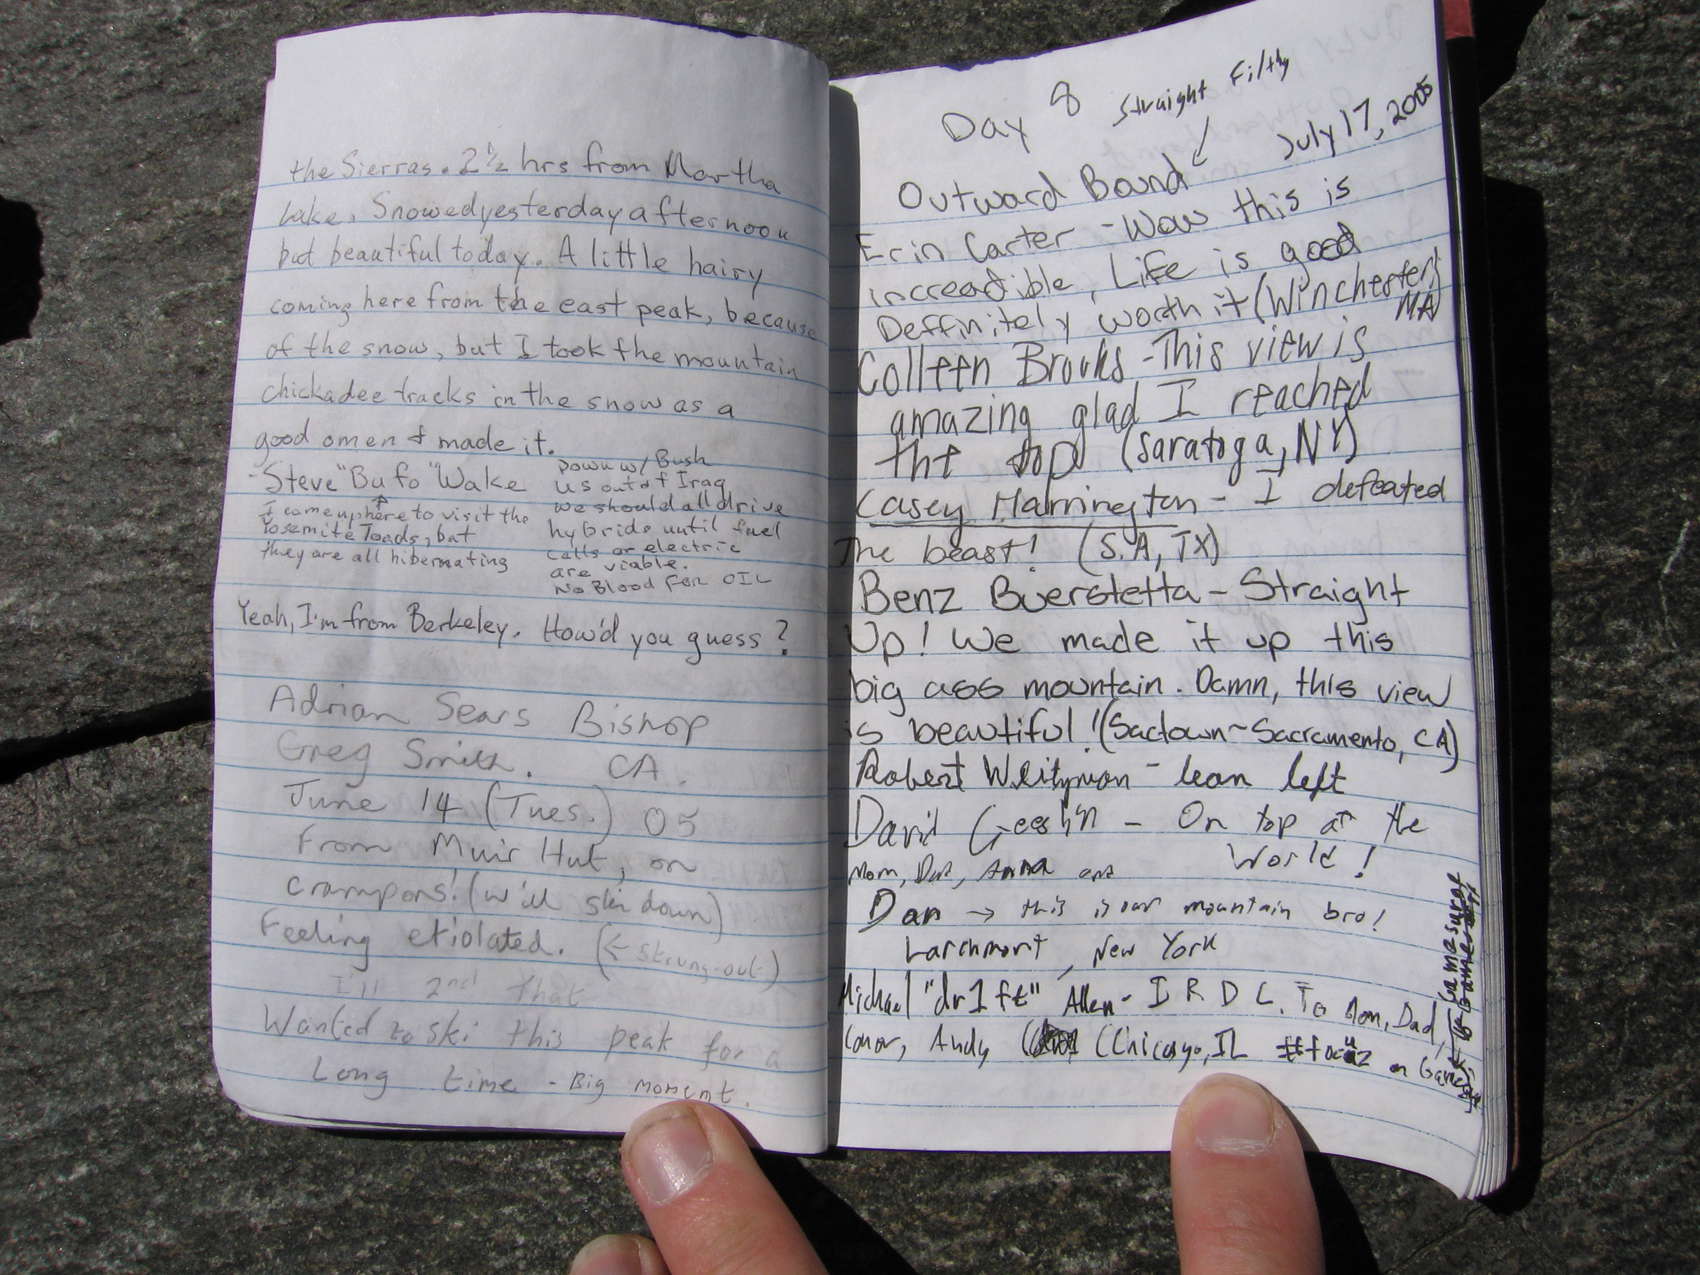 the Sierras. 2½ hrs from Martha
Lake. Snowed yesterday afternoon
but beautiful today. A little hairy
coming here from the east peak, because
of the snow, but I took the mountain
chickadee tracks in the snow as a
good omen & made it.
-Steve "Bufo" Wake
↑
I came up here to visit the
Yosemite Toads, but
they are all hibernating
Down w/ Bush
US out of Iraq
we should all drive
hybrids until fuel
cells or electric
are viable.
No Blood FOR OIL
Yeah, I'm from Berkeley. How'd you guess?
Adrian Sears Bishop
Greg Smith. CA.
June 14 (Tues.) 05
From Muir Hut, on
crampons! (will ski down)
Feeling etiolated. (← strung-out)
I'll 2nd that
Wanted to ski this peak for a
Long time - Big moment.
Day 8 Straight Filthy
July 17, 2005
Outward Bound
Erin Carter - Wow this is
increadible, Life is good
Deffinitely worth it (Winchester,
MA)
Colleen Brooks - This view is
amazing glad I reached
the top (Saratoga, NY)
Casey Harrington - I defeated
The beast! (S.A, TX)
Benz Buerstetta - Straight
Up! We made it up this
big ass mountain. Damn, this view
is beautiful! (Sactown ~ Sacramento, CA)
Robert - lean left
David Geeslin - On top of the
World!
Mom, Dad, Anna and
Dan → this is our mountain bro!
Larchmont, New York
Michael "dr1ft" Allen - I R D L. To Mom, Dad,
Conor, Andy (Chicago, IL on